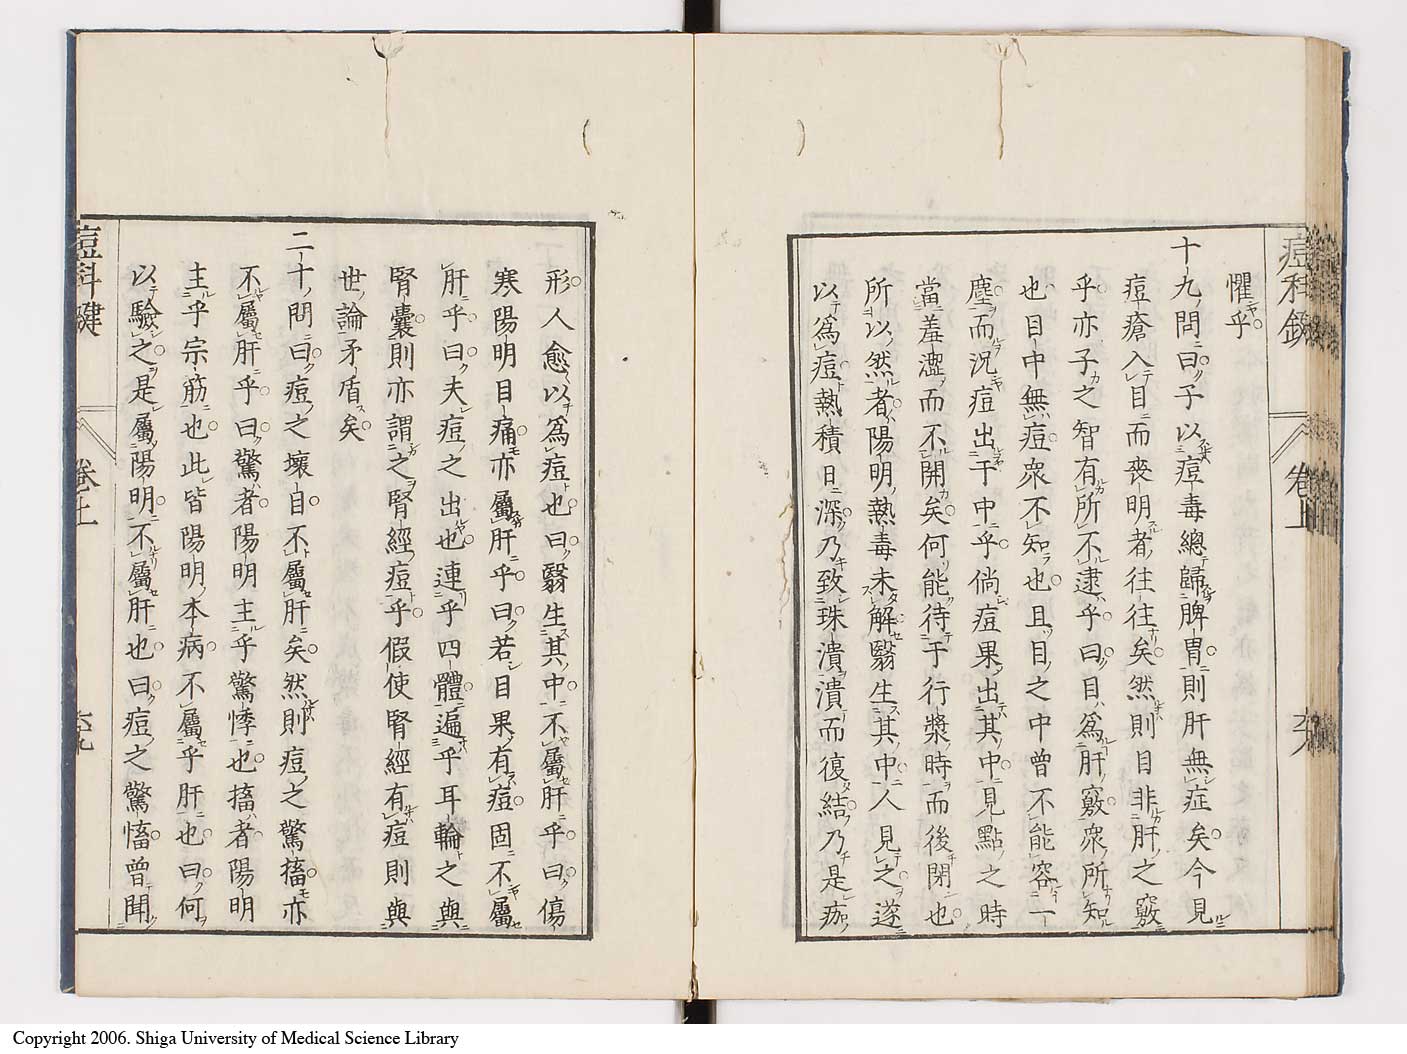 懼乎
十九問曰子以痘毒總歸脾胃則肝無症矣今見
痘瘡入目而喪明者往往矣然則目非肝之竅
乎亦子之智有所不逮乎曰目為肝竅衆所知
也目中無痘衆不知也且目之中曾不能容一
塵而況痘出于中乎倘痘果出其中見點之時
當羞澀而不開矣何能待于行漿時而後閉也
所以然者陽明熱毒未解翳生其中人見之遂
以為痘熱積日深乃致珠潰潰而復結乃是痂
形人愈以為痘也曰翳生其中不屬肝乎曰傷
寒陽明目痛亦屬肝乎曰若目果有痘固不屬
肝乎曰夫痘之出也連乎四體遍乎耳輪之與
腎囊則亦謂之腎經痘乎假使腎經有痘則與
世論矛盾矣
二十問曰痘之壞自不屬肝矣然則痘之驚搐亦
不屬肝乎曰驚者陽明主乎驚悸也搐者陽明
主乎宗筋也此皆陽明本病不屬乎肝也曰何
以驗之是屬陽明不屬肝也曰痘之驚搐曾聞
痘科鍵
卷上
六九
Copyright 2006. Shiga University of Medical Science Library